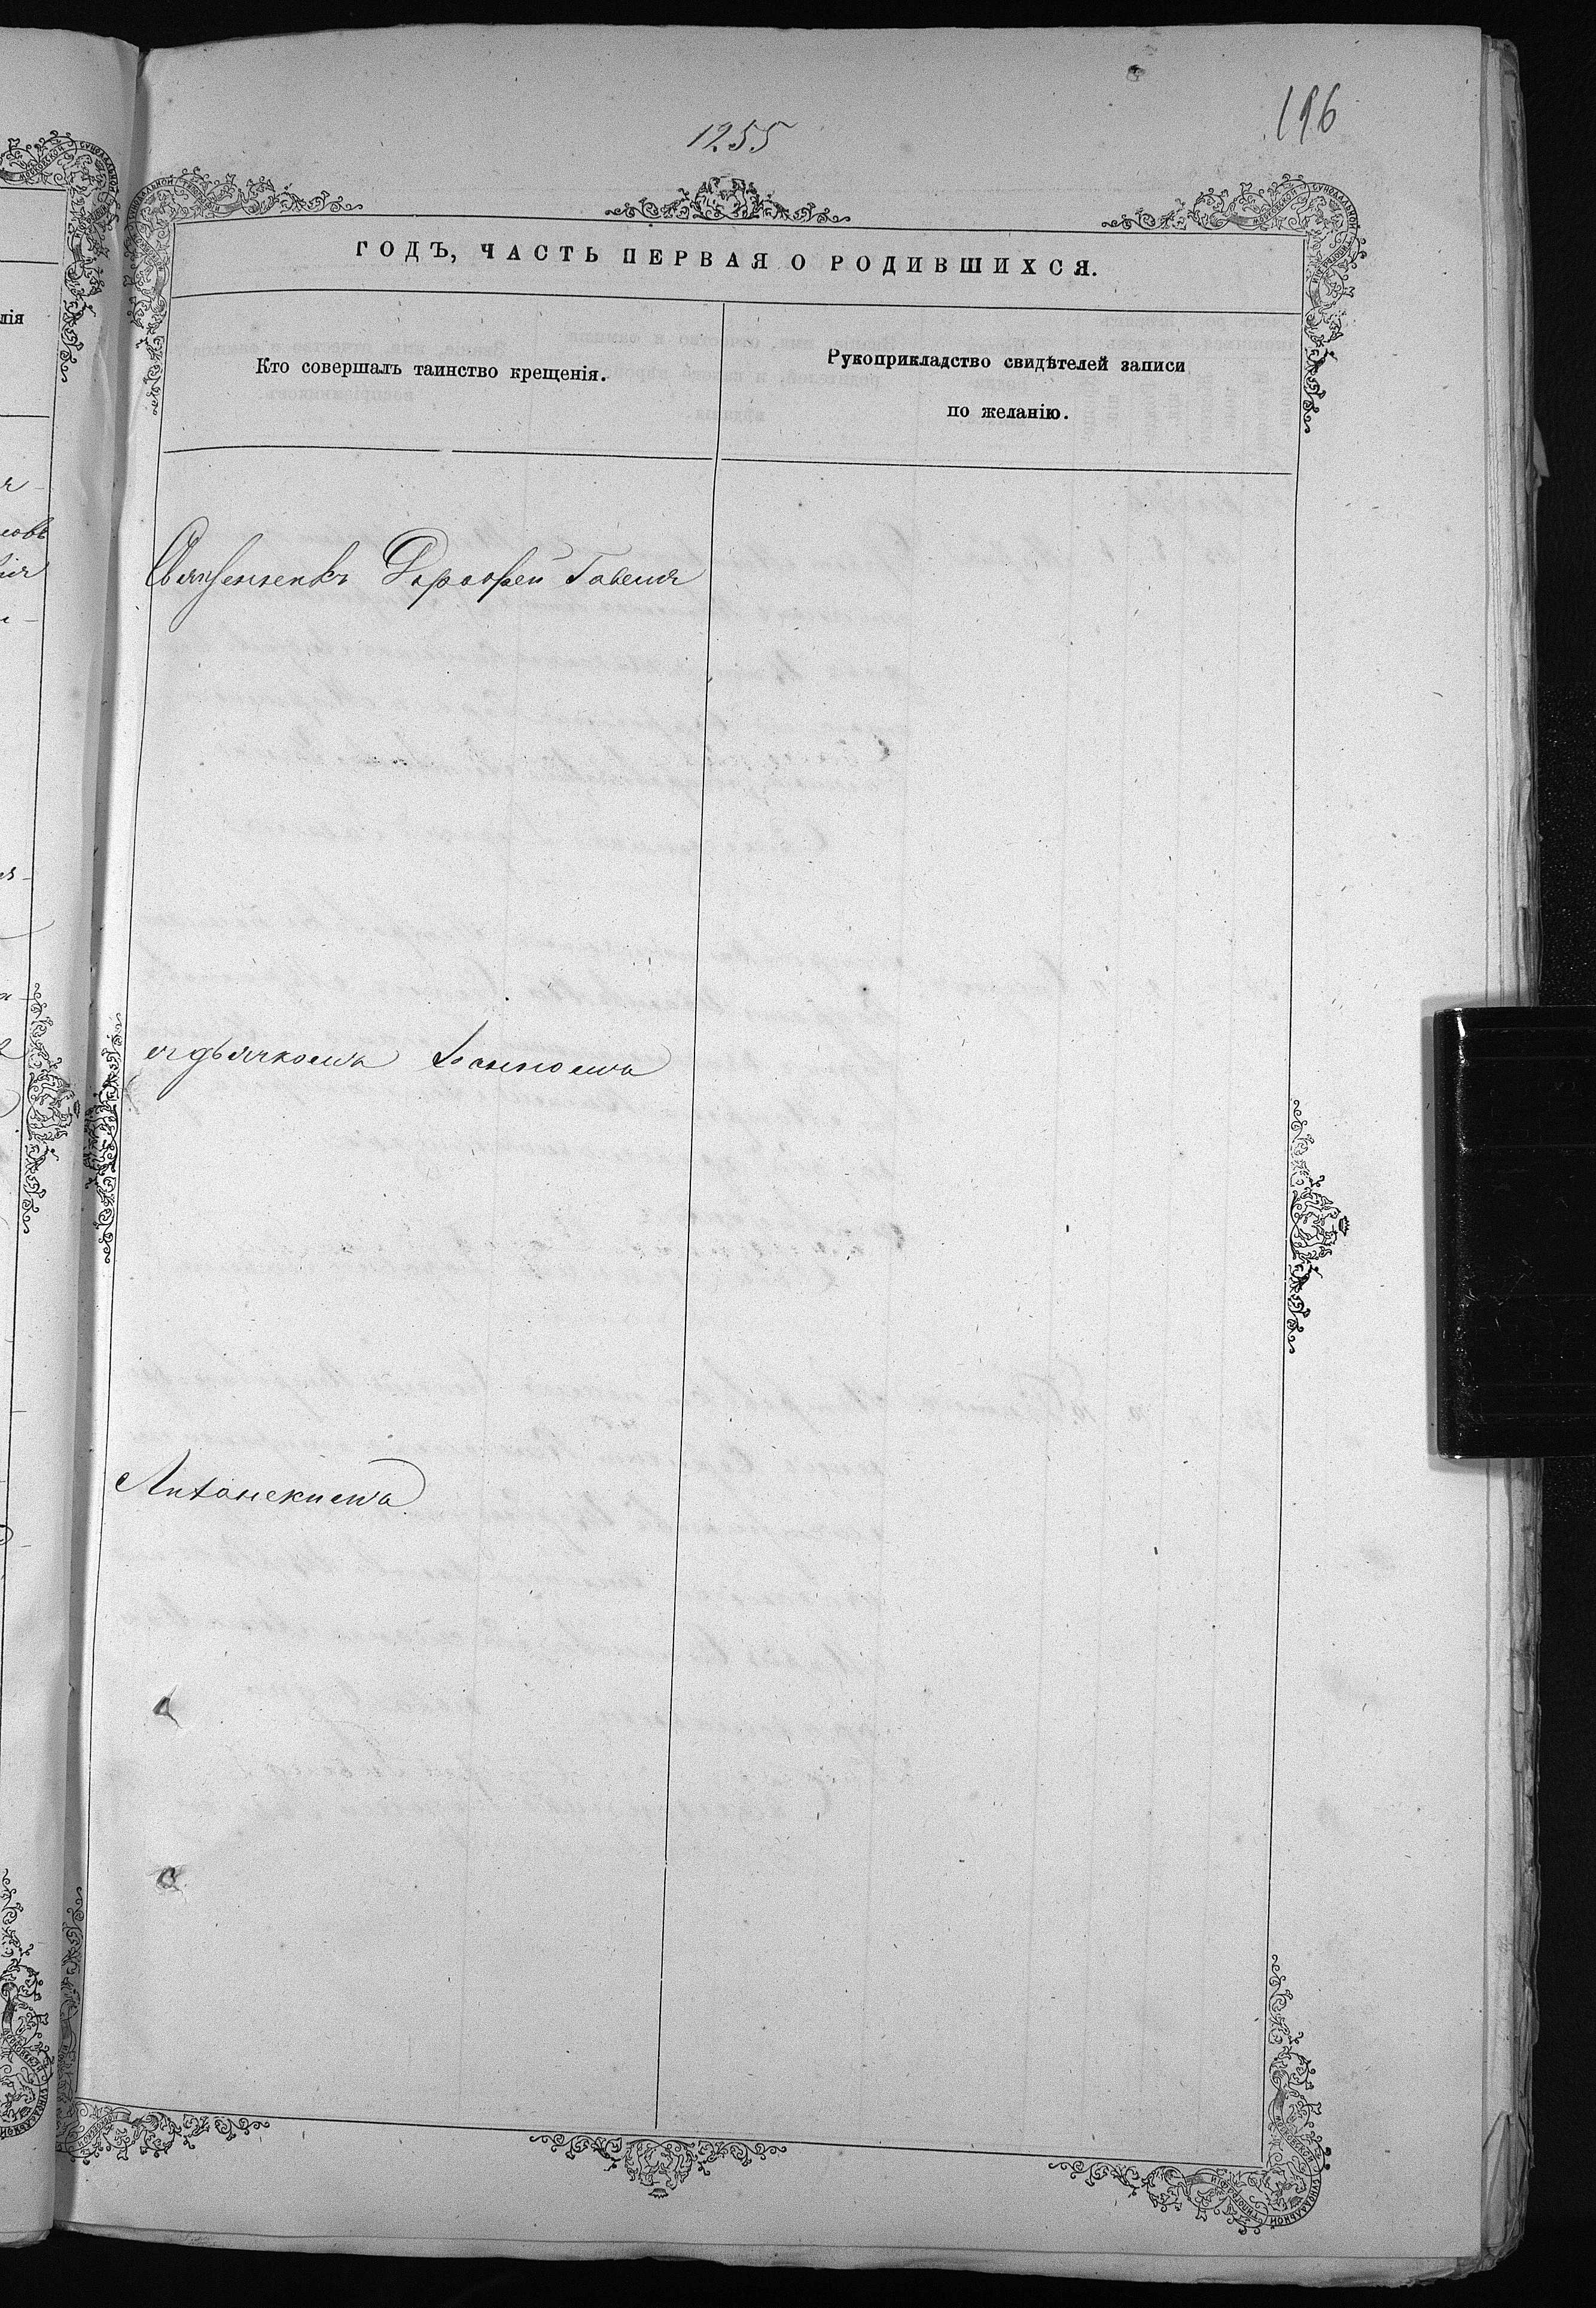 1255
196
ГОДЪ, ЧАСТЬ ПЕРВАЯ О РОДИВШИХСЯ.
Кто совершалъ таинство крещенія.
Рукоприкладство свидѣтелей записи
по желанію.
Священникъ Дорофей
съ дьячкомъ Іоанномъ